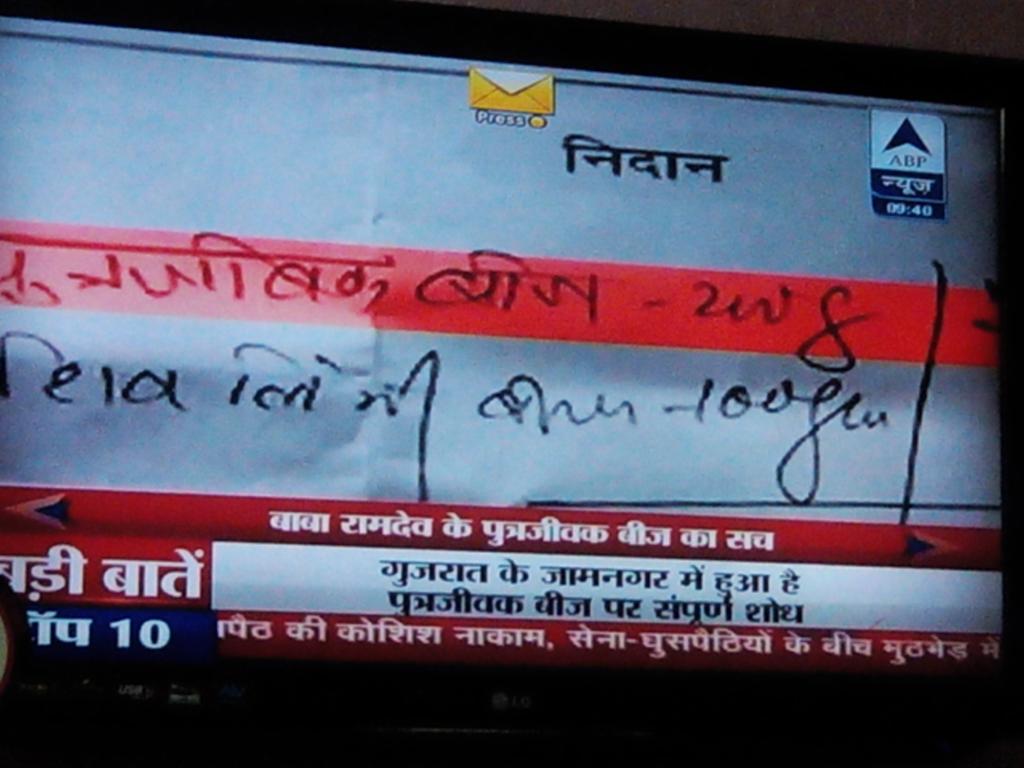 Press
निदान
ABP
न्यूज़
09:40
पुत्रजीवक बीज - 200 g
शिव लिंगी बीज -100gm
बाबा रामदेव के पुत्रजीवक बीज का सच
बड़ी बातें
गुजरात के जामनगर में हुआ है
पुत्रजीवक बीज पर संपूर्ण शोध
टॉप 10
पैठ की कोशिश नाकाम, सेना-घुसपैठियों के बीच मुठभेड़ में
LG